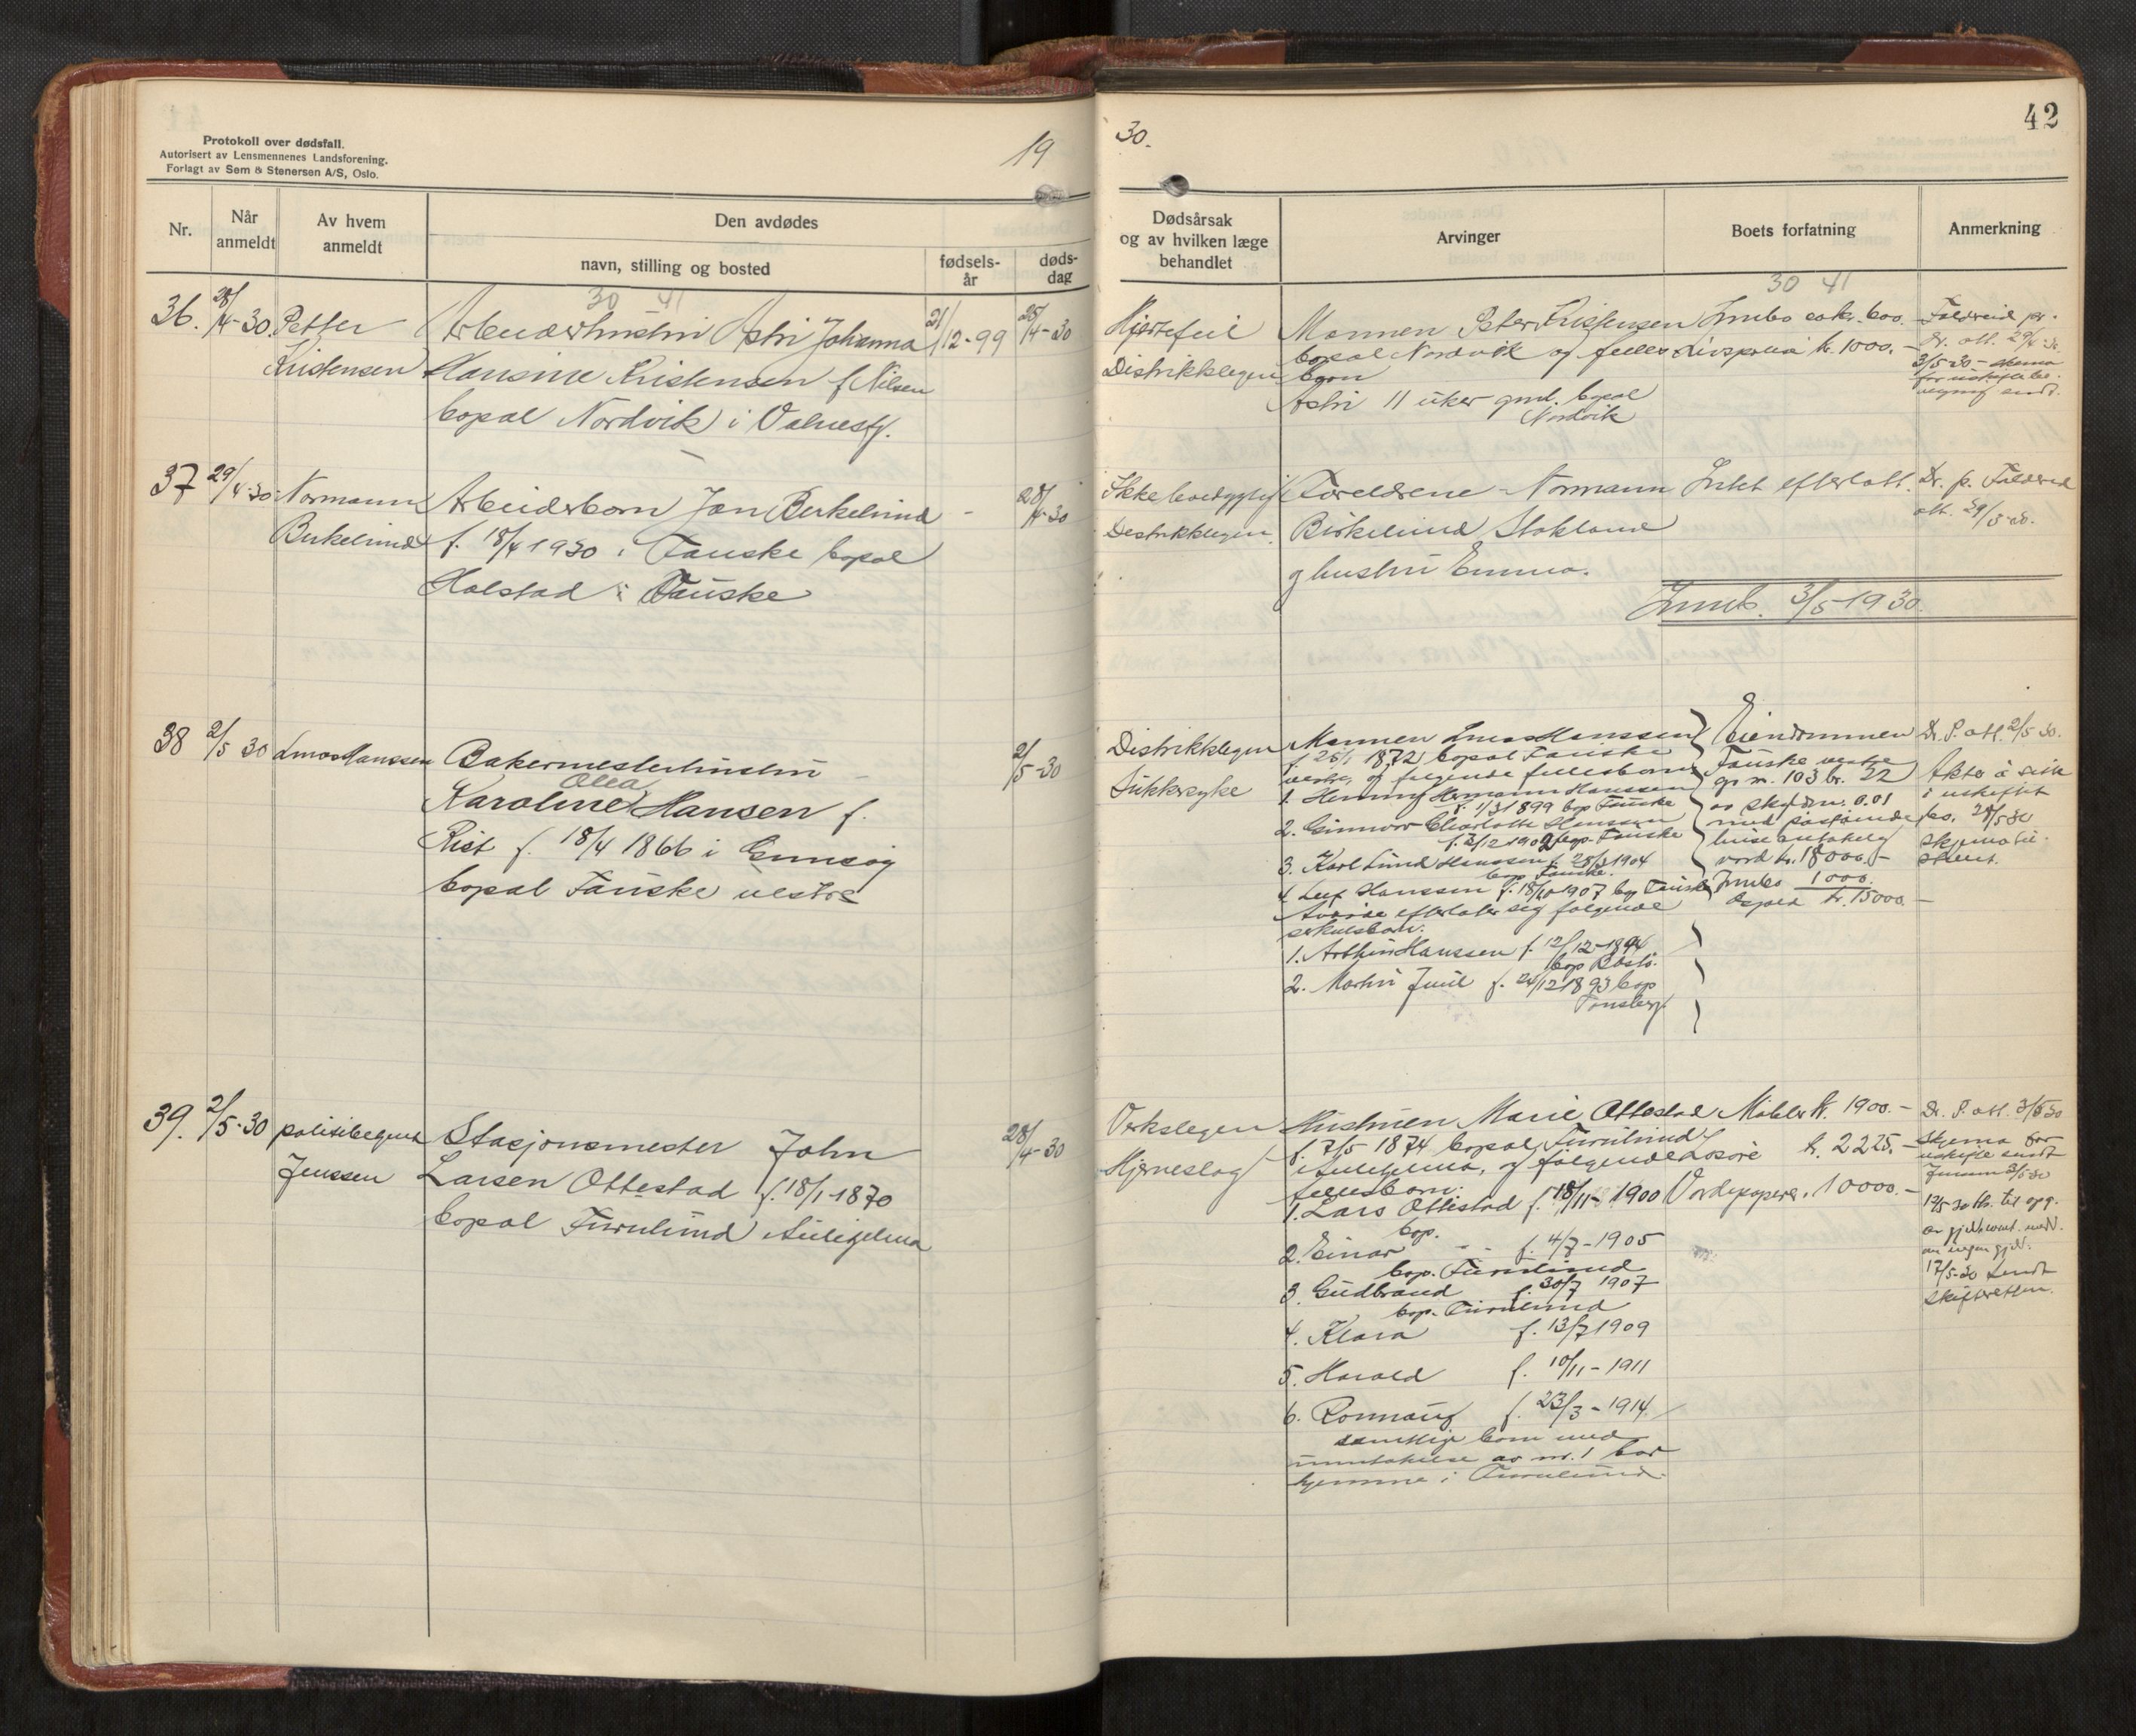 Protokoll over dødsfall.
Autorisert av Lensmennenes Landsforening.
Forlagt av Sem & Stenersen A/S, Oslo.
19
30.
42
Nr.
Når anmeldt
Av hvem anmeldt
Den avdødes
navn, stilling og bosted
fødsels-år
døds-dag
Dødsårsak og av hvilken læge behandlet
Arvinger
Boets forfatning
Anmerkning
30 41
30 41
36. 28/4-30. Petter Kristensen
Arbeiderhustru Astri Johanna
Hansine Kristensen f. Nilsen
bopæl Nordvik i Valnesfj.
21/12-99
25/4-30
Hjertefeil
Distriktslegen
Mannen Peter Kristensen
bopæl Nordvik og felles
barn
Astri 11 uker gml. bopæl
Nordvik
Innbo ca kr. 600.
Livspolise kr. 1000.-
Dr. att. 29/4-30
3/5-30 - skema
for uskifte be-
sendt.
37 29/4-30. Normann Birkelund
Arbeiderbarn Jan Birkelund
f. 18/4 1930 i Fauske bopæl
Halstad i Fauske
-
28/4-30
Distriktslegen.
Foreldrene - Normann
Birkelund Stokland
og hustru Emma.
Intet efterlatt.
att. 29/5-30.
Innb. 3/5-1930.
38 2/5 30 Hanssen
Bakermesterhustru
Olea
Karoline Hansen f.
Rist f. 18/4 1866 i
bopæl Fauske vestre
2/5-30
Distriktslegen
Sukkersyke
Mannen Hanssen
f. 25/1 1872 bopæl Fauske
vestre, og følgende fellesbarn
1. Henning Hermann Hanssen
f. 1/3 1899 bop Fauske
2. Gunnvor Charlotte Hanssen
f. 2/12 1902 bop. Fauske
3. Karl Lund Hanssen f. 28/3 1904
bop Fauske.
4. Leif Hanssen f. 18/10 1907 bop Fauske
Avdøde efterlater sig følgende
særkulsbarn.
1. Arthur Hanssen f. 12/12-1894
bop Bodø.
2. Martin Juul f. 24/12 1893 bop
Tønsberg.
Eiendommen
Fauske vestre
gr. nr. 103 br. 32
av skyldm. 0.01
med påstående
huse antakelig
verd kr. 18000.-
Innbo 1000.
kr. 15000.-
Dr. P. att. 2/5 30.
Akter å sitte
i uskiftet
bo. 28/5 30
skjema til-
39. 2/5-30 politibetjent Jenssen
Stasjonsmester John
Larsen Ottestad f. 18/1-1870
bopæl Furulund Sulitjelma
28/4-30
Verkslegen
Hjerneslag
Hustruen Marie Ottestad
f. 7/5 1874 bopæl Furulund
i Sulitjelma, og følgende
fellesbarn:
1. Lars Ottestad f. 18/11-1900
bop.
2. Einar - - f. 4/7-1905
bop. Furulund
3. Gudbrand f. 30/7 1907
bop. Furulund
4. Klara f. 13/7 1909
5. Harald f. 10/11-1911
6. Ronnaug f. 23/3-1914
samtlige barn med
unntakelse av nr. 1 bor
hjemme i Furulund.
Møbler kr. 1900.-
Losøre kr. 2225.-
Verdipapere. 10000.-
Dr. P. att. 3/5 30
skjema for
uskifte sendt
17/5-30 sendt
skifteretten.